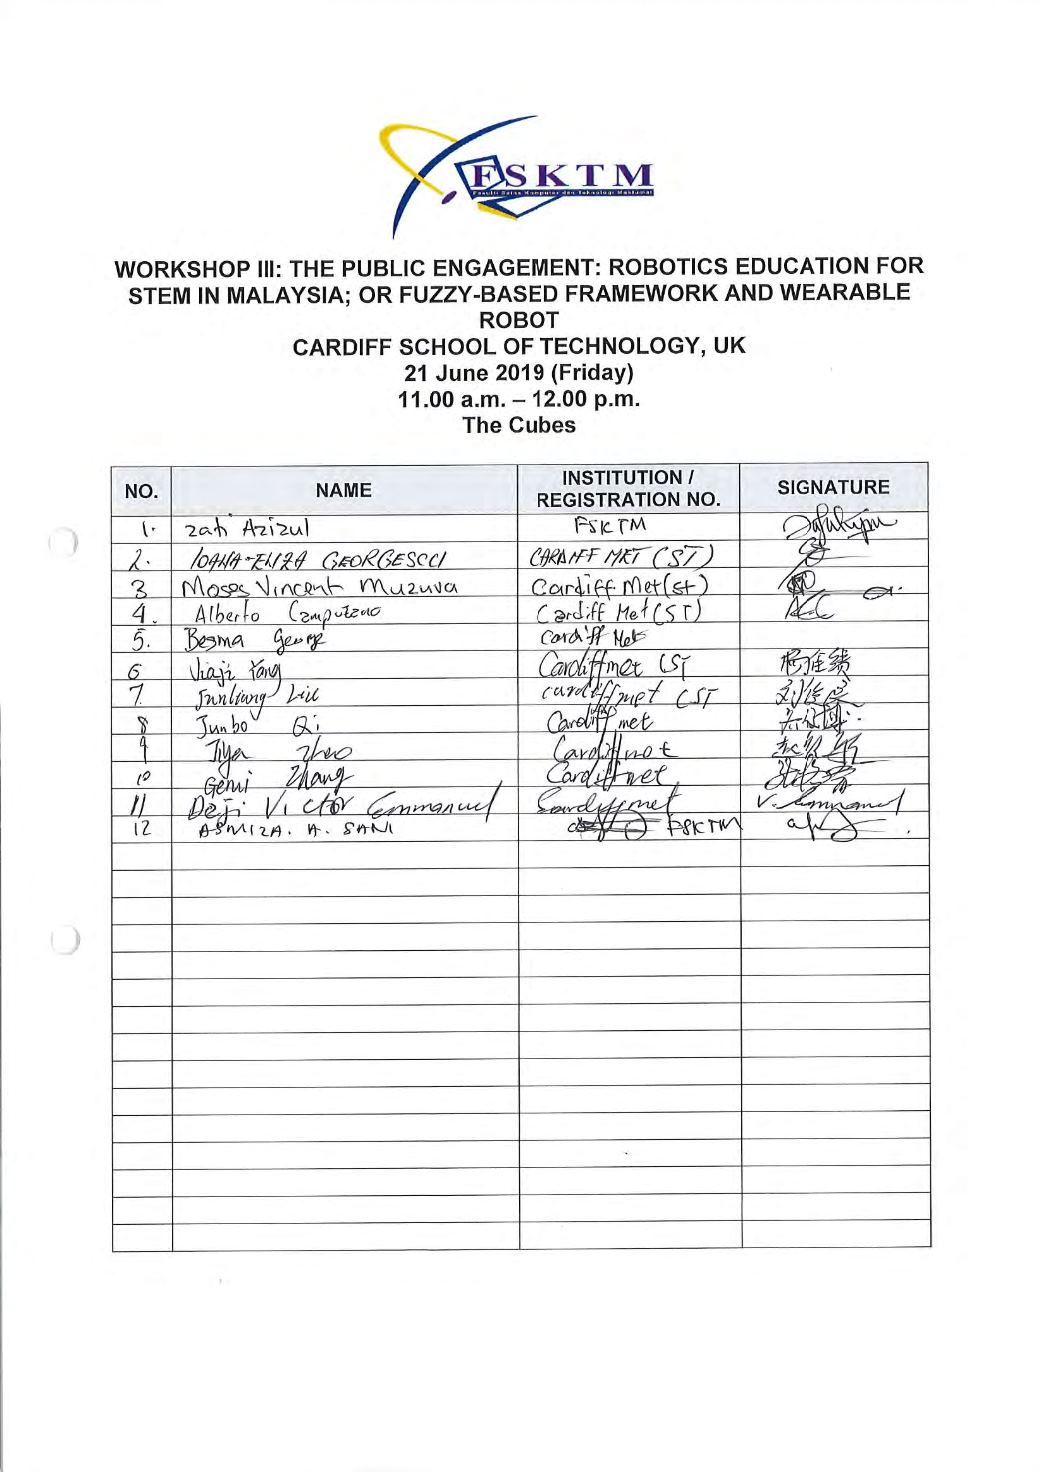 FSKTM
Fakulti Sains Komputer dan Teknologi Maklumat
WORKSHOP III: THE PUBLIC ENGAGEMENT: ROBOTICS EDUCATION FOR
STEM IN MALAYSIA; OR FUZZY-BASED FRAMEWORK AND WEARABLE
ROBOT
CARDIFF SCHOOL OF TECHNOLOGY, UK
21 June 2019 (Friday)
11.00 a.m. – 12.00 p.m.
The Cubes
NO. NAME INSTITUTION / REGISTRATION NO. SIGNATURE
1. Zati Azizul FSKTM
2. IOANA-ELIZA GEORGESCU CARDIFF MET (ST)
3 Moses Vincent Muzuva Cardiff Met(st)
4. Alberto Campuzano Cardiff Met (ST)
5. Besma George Cardiff Met
6 Yang Cardiffmet CST
7. Junliang Liu cardiffmet CST
8 Junbo Qi Cardiff met
9 Zhao Cardiffmet
10 Zhang Cardiffmet
11 Deji Victor Emmanuel Cardiffmet V. Emmanuel
12 ASMIZA. A. SANI FSKTM